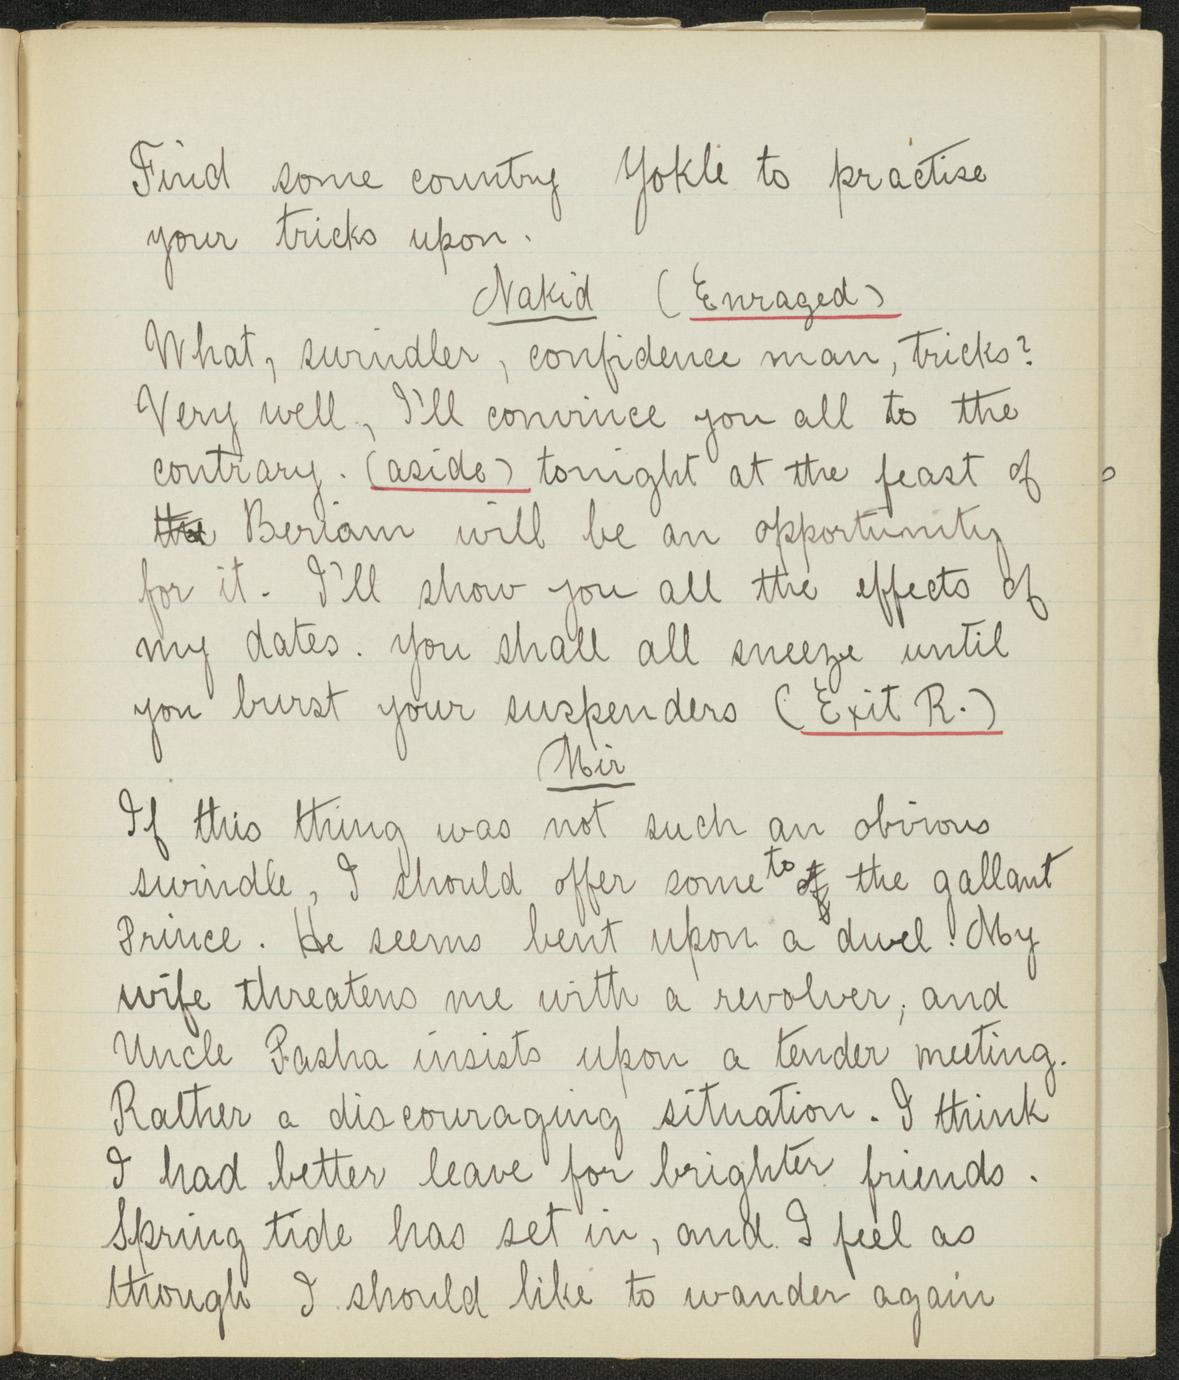 Find some country Yokle to practise
your tricks upon.
Nakid (Enraged)
What, swindler, confidence man, tricks?
Very well, I'll convince you all to the
contrary. (aside) tonight at the feast of
the Beriam will be an opportunity
for it. I'll show you all the effects of
my dates. you shall all sneeze until
you burst your suspenders (Exit R.)
Mir
If this thing was not such an obvious
swindle, I should offer some to of the gallant
Prince. He seems bent upon a duel! My
wife threatens me with a revolver, and
Uncle Pasha insists upon a tender meeting.
Rather a discouraging situation. I think
I had better leave for brighter friends.
Spring tide has set in, and I feel as
though I should like to wander again